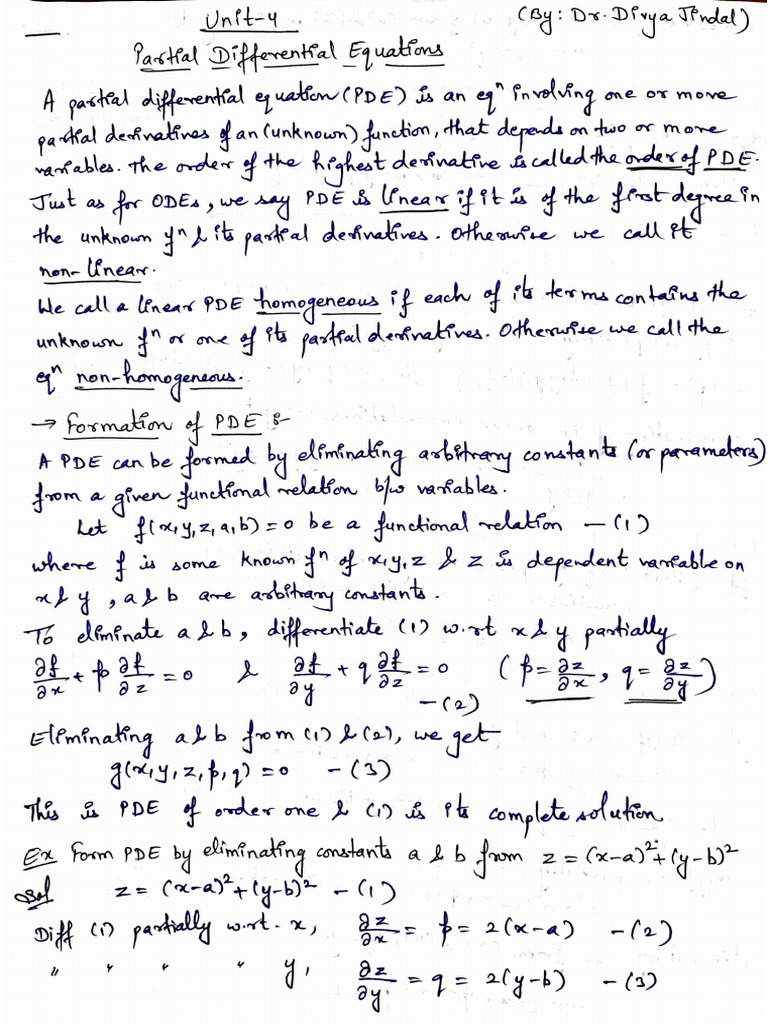 Unit-4 (By: Dr. Divya Jindal)
Partial Differential Equations
A partial differential equation (PDE) is an eqⁿ involving one or more
partial derivatives of an (unknown) function, that depends on two or more
variables. The order of the highest derivative is called the order of PDE.
Just as for ODEs, we say PDE is linear if it is of the first degree in
the unknown fⁿ & its partial derivatives. Otherwise we call it
non-linear.
We call a linear PDE homogeneous if each of its terms contains the
unknown fⁿ or one of its partial derivatives. Otherwise we call the
eqⁿ non-homogeneous.
→ Formation of PDE :-
A PDE can be formed by eliminating arbitrary constants (or parameters)
from a given functional relation b/w variables.
Let f(x,y,z,a,b)=0 be a functional relation —(1)
where f is some known fⁿ of x,y,z & z is dependent variable on
x & y, a & b are arbitrary constants.
To eliminate a & b, differentiate (1) w.r.t x & y partially
∂f/∂x + p ∂f/∂z = 0 & ∂f/∂y + q ∂f/∂z = 0 (p = ∂z/∂x, q = ∂z/∂y)
—(2)
Eliminating a & b from (1) & (2), we get
g(x,y,z,p,q)=0 —(3)
This is PDE of order one & (1) is its complete solution
Ex Form PDE by eliminating constants a & b from z = (x-a)²+(y-b)²
Sol z = (x-a)²+(y-b)² —(1)
Diff (1) partially w.r.t. x, ∂z/∂x = p = 2(x-a) —(2)
" " " " y, ∂z/∂y = q = 2(y-b) —(3)